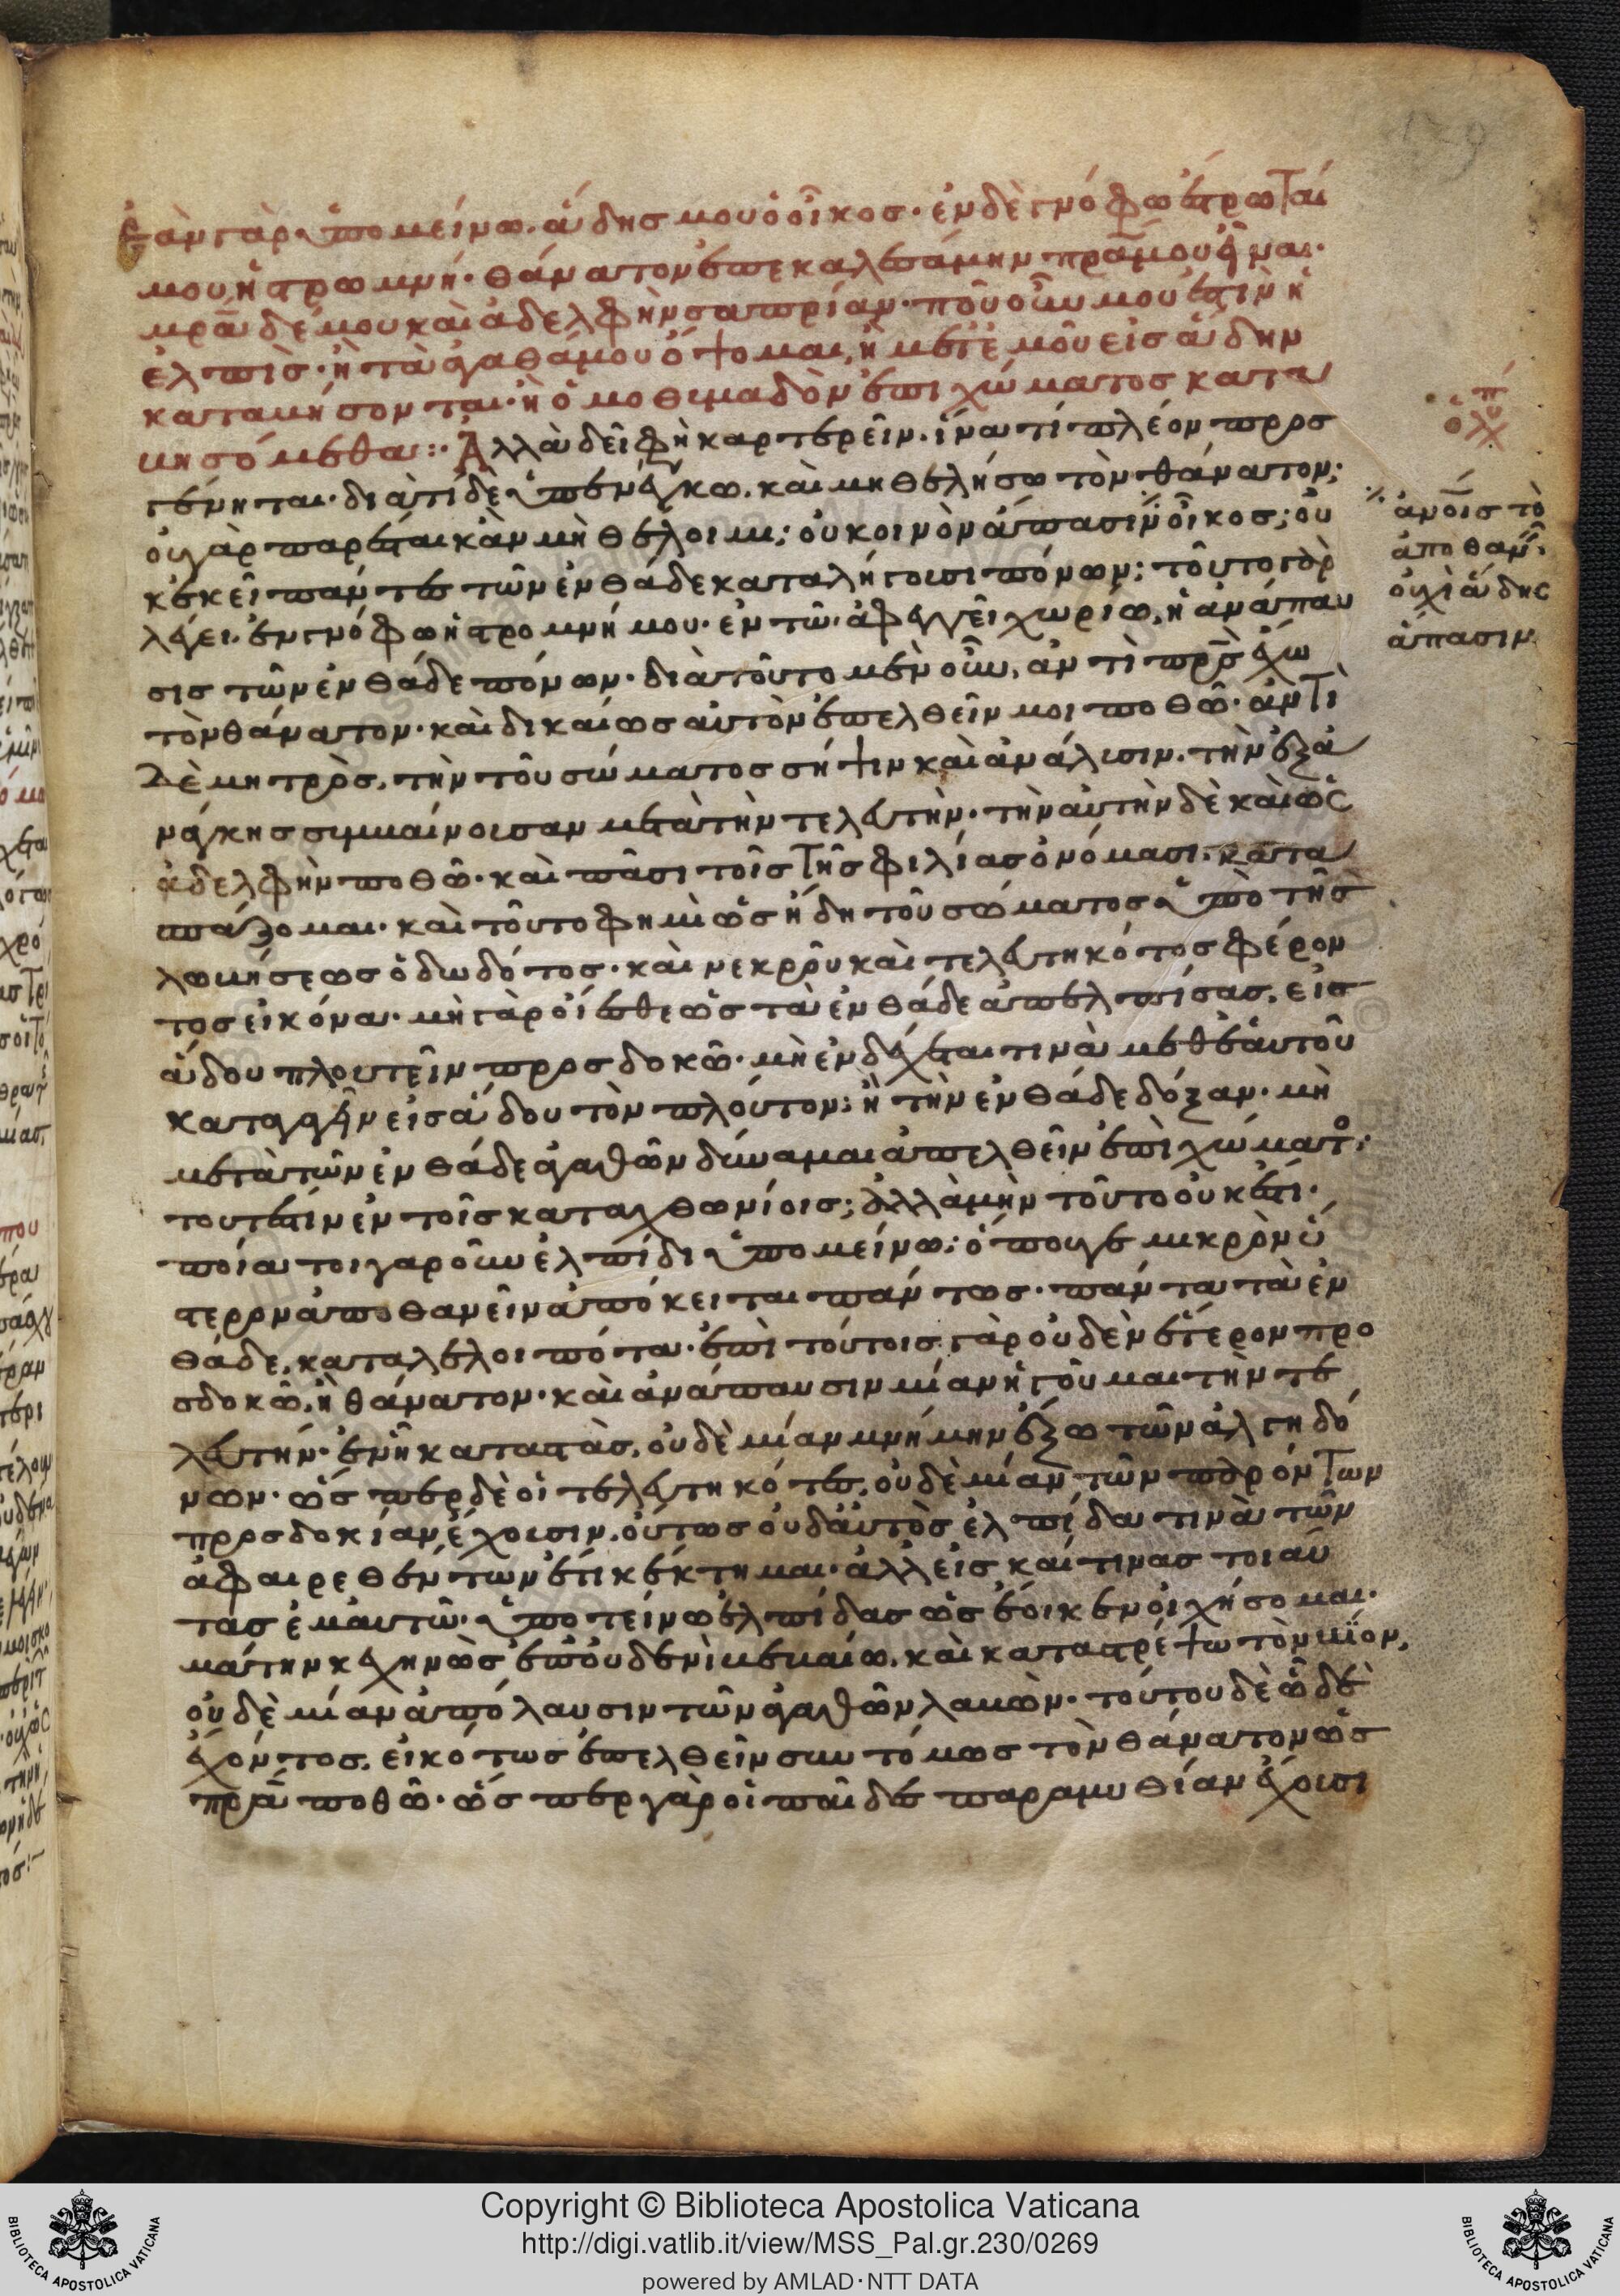 ἐὰν γὰρ ὑπομείνω. ἅδης μου ὁ οἶκος· ἐν δὲ γνόφω ἔστρωταί
μου ἡ στρωμνή· θάνατον ἐπεκαλεσάμην πρα μου εἶναι·
μρα δέ μου καὶ ἀδελφὴν σαπρίαν· ποῦ οὖν μου ἐστιν ἡ
ἐλπίς· ἢ τὰ ἀγαθά μου ὄψομαι, ἢ μετ ἐμοῦ εἰς ἅδην
καταβήσονται· ἢ ὁμοθυμαδὸν ἐπι χώματος κατα
βησόμεθα: Ἀλλὰ δεῖ φὴ καρτερεῖν. ἵνα τί πλέον προσ
γένηται· διὰ τί δὲ ὑπενέγκω. καὶ μὴ θελήσω τὸν θάνατον;
οὐ γὰρ παρέσται κἂν μὴ θέλοιμι; οὐ κοινὸν ἅπασιν οἶκος; οὐ
κἀκεῖ πάντες τῶν ἐνθάδε καταλήγουσι πόνων; τοῦτο γὰρ
λέγει. ἐν γνόφω ἡ στρομνή μου. ἐν τῶ ἀφεγγεῖ χωρίω, ἡ ἀνάπαυ
σις τῶν ἐνθάδε πόνων. διὰ τοῦτο μὲν οὖν, ἀντὶ πρς ἔχω
τὸν θάνατον. καὶ δικαίως αὐτὸν ἐπελθεῖν μοι ποθῶ. ἀντὶ
δὲ μητρὸς, τὴν τοῦ σώματος σῆψιν καὶ ἀνάλυσιν. τὴν ἐξ ἀ
νάγκης συμβαίνουσαν μετὰ τὴν τελευτήν. τὴν αὐτὴν δὲ καὶ ὡς
ἀδελφὴν ποθῶ. καὶ πᾶσι τοῖς τῆς φιλίας ὀνόμασι. κατα
σπάζομαι. καὶ τοῦτο φημὶ ὡς ἤδη τοῦ σώματος ὑπὸ τῆς
λωβήσεως ὀδωδότος. καὶ νεκροῦ καὶ τελευτηκότος φέρον
τος εἰκόνα. μὴ γὰρ οἴεσθε ὡς τὰ ἐνθάδε ἀπελπίσας, εἰς
ἅδου πλουτεῖν προσδοκῶ. μὴ ἐνδέχεται τινὰ μεθ ἑαυτοῦ
καταγαγεῖν εἰς ἅδου τὸν πλοῦτον; ἢ τὴν ἐνθάδε δόξαν. μὴ
μετὰ τῶν ἐνθάδε ἀγαθῶν δύναμαι ἀπελθεῖν ἐπὶ χώματος;
τουτέστιν ἐν τοῖς καταχθονίοις; ἀλλὰ μὴν τοῦτο οὐκ ἔστι.
ποία τοιγαροῦν ἐλπίδι ὑπομείνω; ὅπου γε μικρὸν ὕ
στερον ἀποθανεῖν ἀπόκειται πάντως. πάντα τὰ ἐν
θάδε, καταλελοιπότα. ἐπὶ τούτοις γὰρ οὐδὲν ἕτερον προ
σδοκῶ, ἢ θάνατον. καὶ ἀνάπαυσιν μίαν ἡγοῦμαι τὴν τε
λευτήν. ἐν ῆ καταστὰς, οὐδὲ μίαν μνήμην ἕξω τῶν ἀλγηδό
νων. ὥς περ δὲ οἱ τελευτηκότες, οὐδὲ μίαν τῶν παρόντων
προσδοκίαν ἔχουσιν. οὕτως οὐδ αὐτὸς ἐλπίδα τινὰ τῶν
ἀφαιρεθέντων ἔτι κέκτημαι. ἀλλ εἰς καί τινας τοιαύ
τας ἐμαυτῶ. ὑποτείνω ἐλπίδας ὡς ἔοικεν οἰχήσομαι.
μάτην κεχηνὼς ἐπ οὐδενὶ βεβαίω, καὶ καταστρέψω τὸν βίον,
οὐδὲ μίαν ἀπόλαυσιν τῶν ἀγαθῶν λαβὼν. τούτου δὲ ὧδε
ἔχοντος, εἰκότως ἐπελθεῖν συντόμως τὸν θάνατον ὡς
πρα ποθῶ. ὥς περ γὰρ οἱ παῖδες παραμυθίαν ἔχουσι
ἀνοις τὸ
ἀποθαν
οὐχὶ ἅδης
ἅπασιν